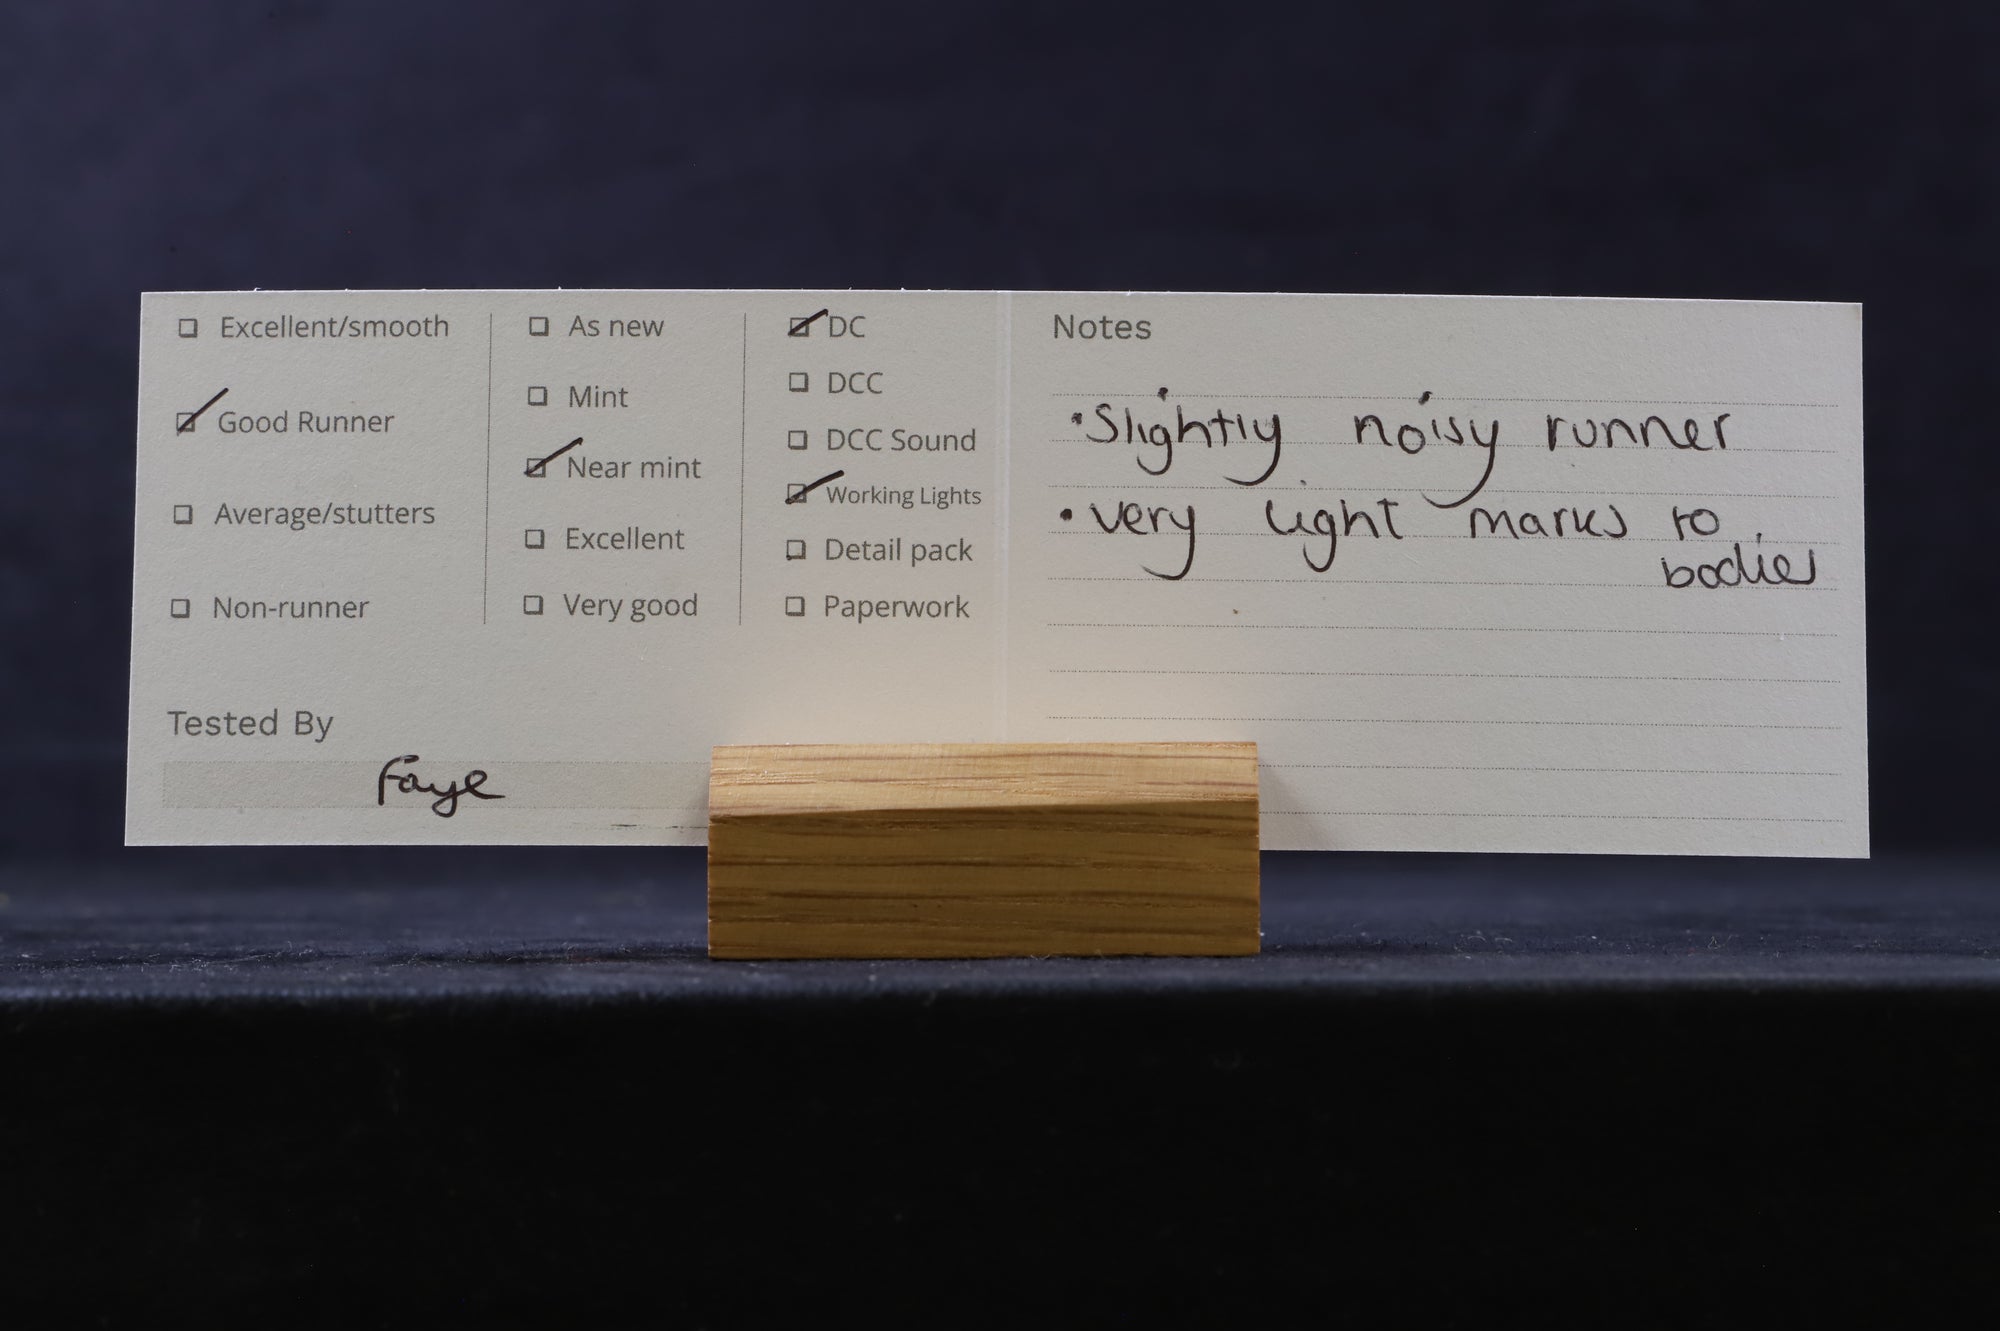 Excellent/smooth
Good Runner
Average/stutters
Non-runner
As new
Mint
Near mint
Excellent
Very good
DC
DCC
DCC Sound
Working Lights
Detail pack
Paperwork
Tested By
Faye
Notes
• Slightly noisy runner
• very light marks to
bodies